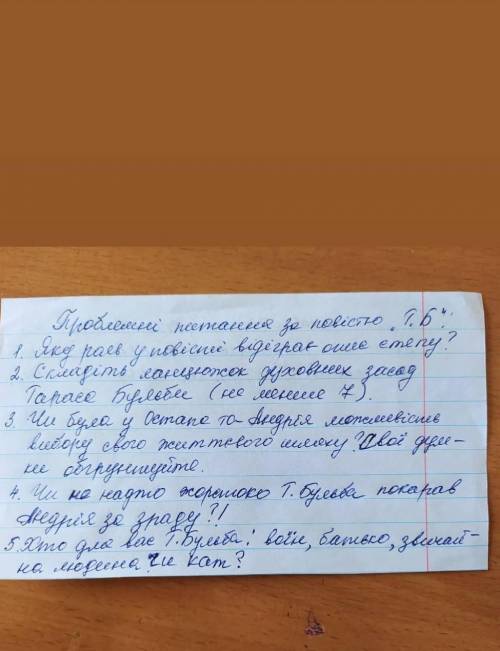 Проблемні питання за повістю „Т.Б":
1. Яку роль у повісті відіграє опис степу?
2. Складіть ланцюжок духовних засад
Тараса Бульби (не менше 7).
3. Чи була у Остапа та Андрія можливість
вибору свого життєвого шляху? Свої дум-
ки обгрунтуйте.
4. Чи не надто жорстоко Т.Бульба покарав
Андрія за зраду?!
5. Хто для вас Т.Бульба: воїн, батько, звичай-
на людина чи кат?